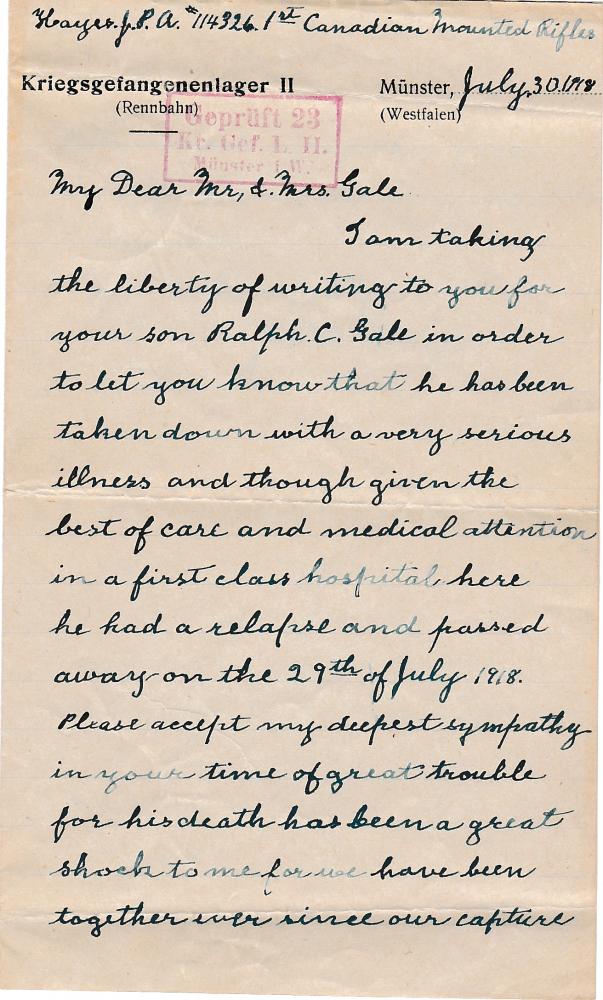 Hayes. J. P. A. #114326. 1st Canadian Mounted Rifles
Kriegsgefangenenlager II
(Rennbahn)
Münster, July, 30. 1918
(Westfalen)
Geprüft 23
Kr. Gef. L. II.
Münster i. W.
My Dear Mr, & Mrs. Gale
I am taking
the liberty of writing to you for
your son Ralph. C. Gale in order
to let you know that he has been
taken down with a very serious
illness and though given the
best of care and medical attention
in a first class hospital here
he had a relapse and passed
away on the 29th of July 1918.
Please accept my deepest sympathy
in your time of great trouble
for his death has been a great
shock to me for we have been
together ever since our capture